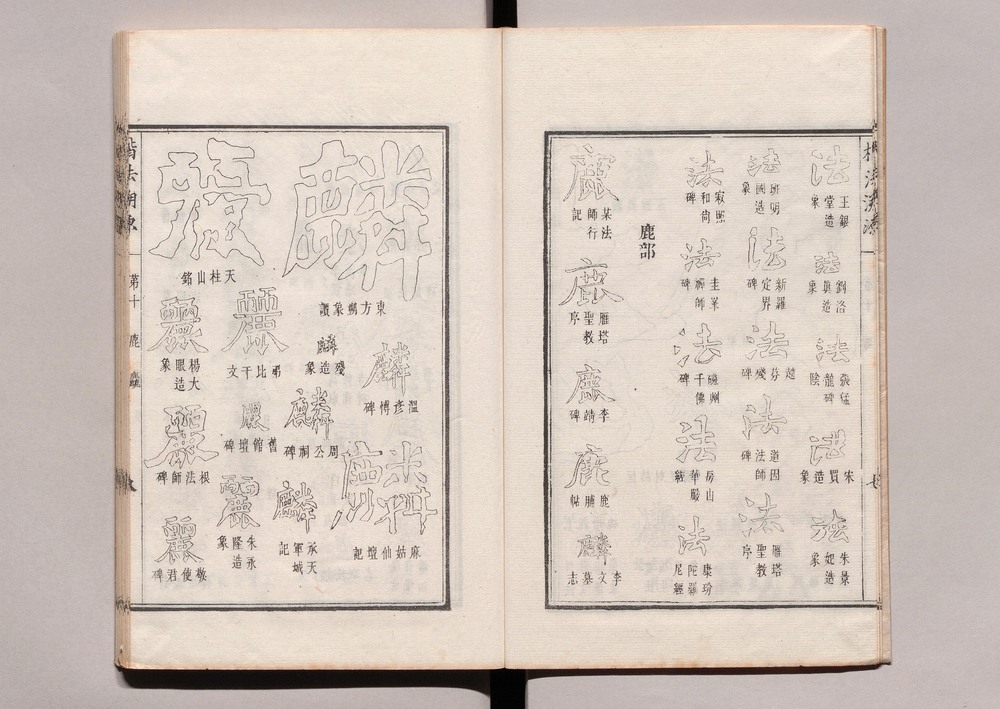 法 王銀堂造象
法 劉洛真造象
法 張猛龍碑陰
法 宋買造象
法 朱景妃造象
法 班明國造象
法 新羅定界碑
法 越芬殘碑
法 道因法師碑
法 雁塔聖教序
法 寂照和尚碑
法 圭峯禪師碑
法 磁州千佛碑
法 房山華嚴經
法 康玢陀羅尼經
鹿部
鹿 某法師行記
鹿 雁塔聖教序
鹿 李靖碑
鹿 鹿脯帖
麟 李文墓志
麟 東方朔象讚
麟 溫彥博碑
麟 麻姑仙壇記
麟 殘造象
麟 周公祠碑
麟 承天軍城記
麗 天柱山銘
麗 弔比干文
麗 舊館壇碑
麗 朱永隆造象
麗 楊大眼造象
麗 根法師碑
麗 敬使君碑
楷法溯源 第十 鹿